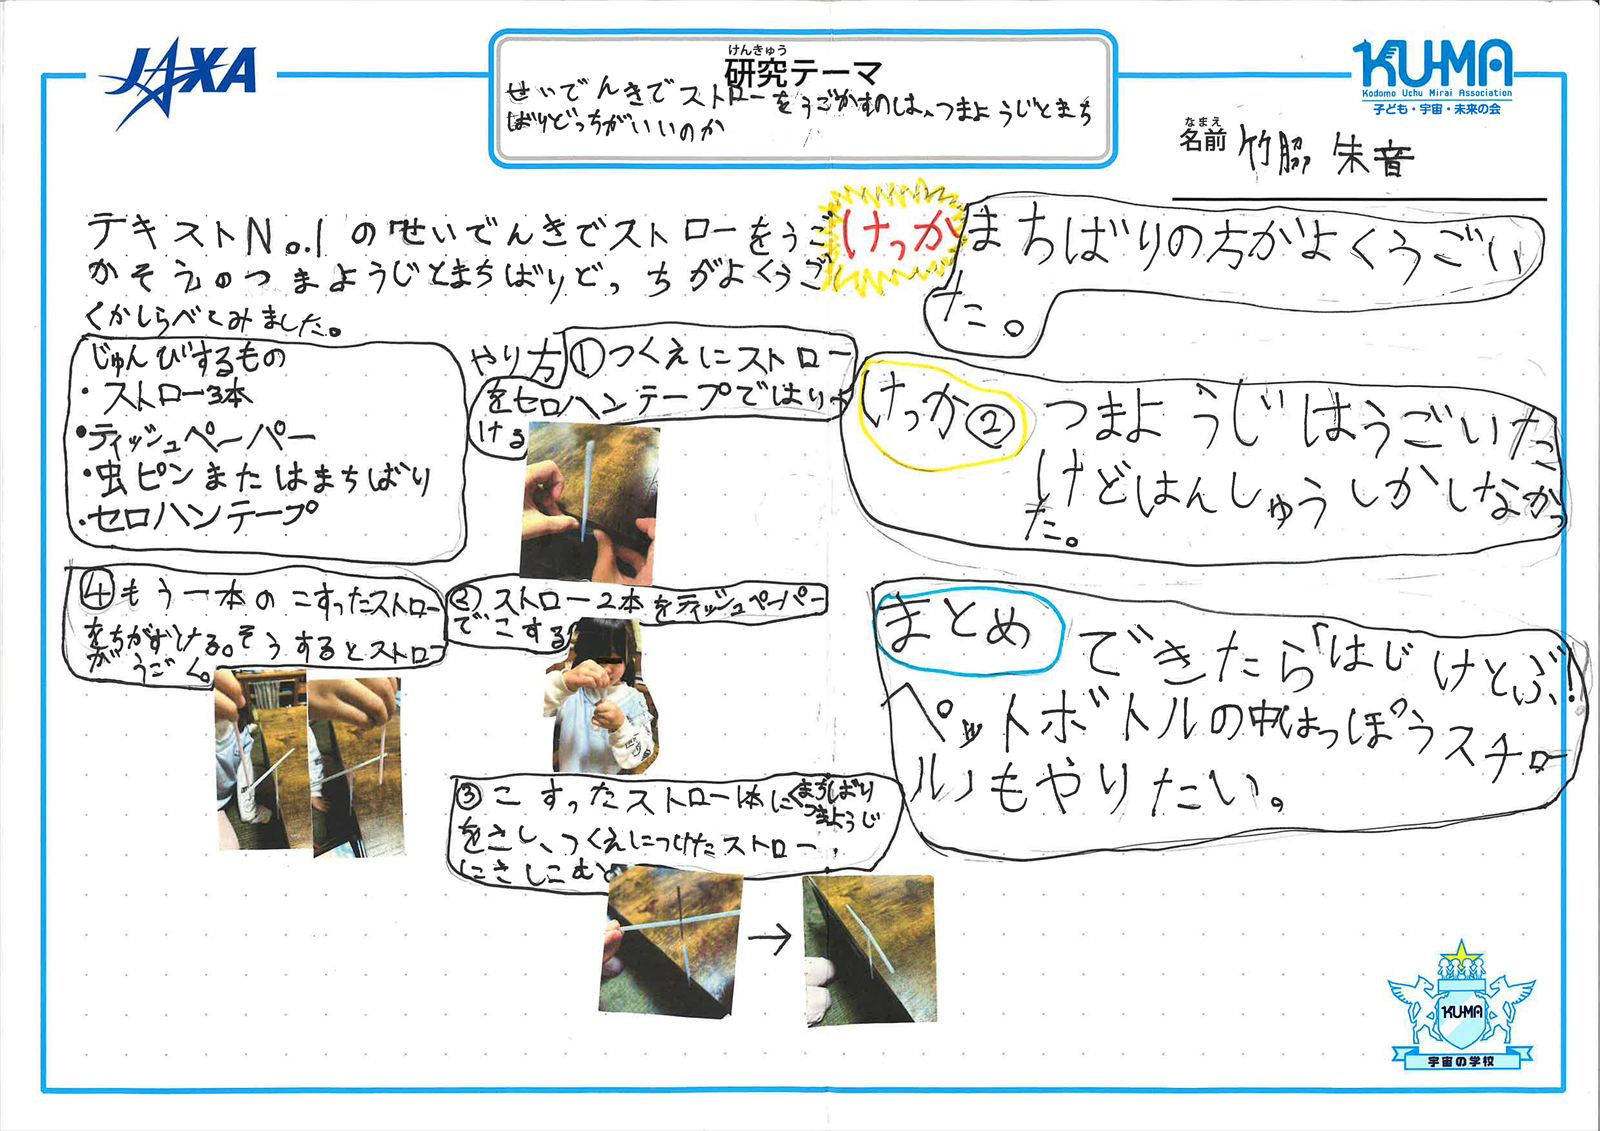 JAXA
けんきゅう
研究テーマ
せいでんきでストローをうごかすのは、つまようじとまち
ばりどっちがいいのか
KU-MA
Kodomo Uchu Mirai Association
子ども・宇宙・未来の会
なまえ
名前 竹脇 朱音
テキストNo.1の「せいでんきでストローをうご
かそう」のつまようじとまちばりどっちがよくうご
くかしらべてみました。
じゅんびするもの
・ストロー3本
・ティッシュペーパー
・虫ピンまたはまちばり
・セロハンテープ
やり方 ①つくえにストロー
をセロハンテープではりつ
ける
②ストロー2本をティッシュペーパー
でこする
③こすったストロー1本に
まちばり
つまようじ
をさし、つくえにつけたストロー
にさしこむと
→
④もう一本のこすったストロー
をちかずける。そうするとストロー
がうごく。
けっか まちばりの方がよくうごい
た。
けっか② つまようじはうごいた
けどはんしゅうしかしなかっ
た。
まとめ できたら「はじけとぶ!
ペットボトルの中はっぽうスチロー
ル」もやりたい。
KU-MA
宇宙の学校